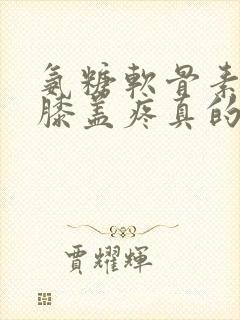 氨糖軟骨素
膝盖疼真的
賈耀輝